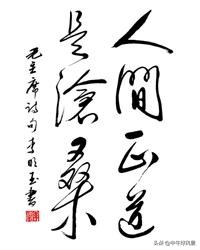 人间正道
是沧桑
毛主席诗句 李明玉书
头条 @中华好风景